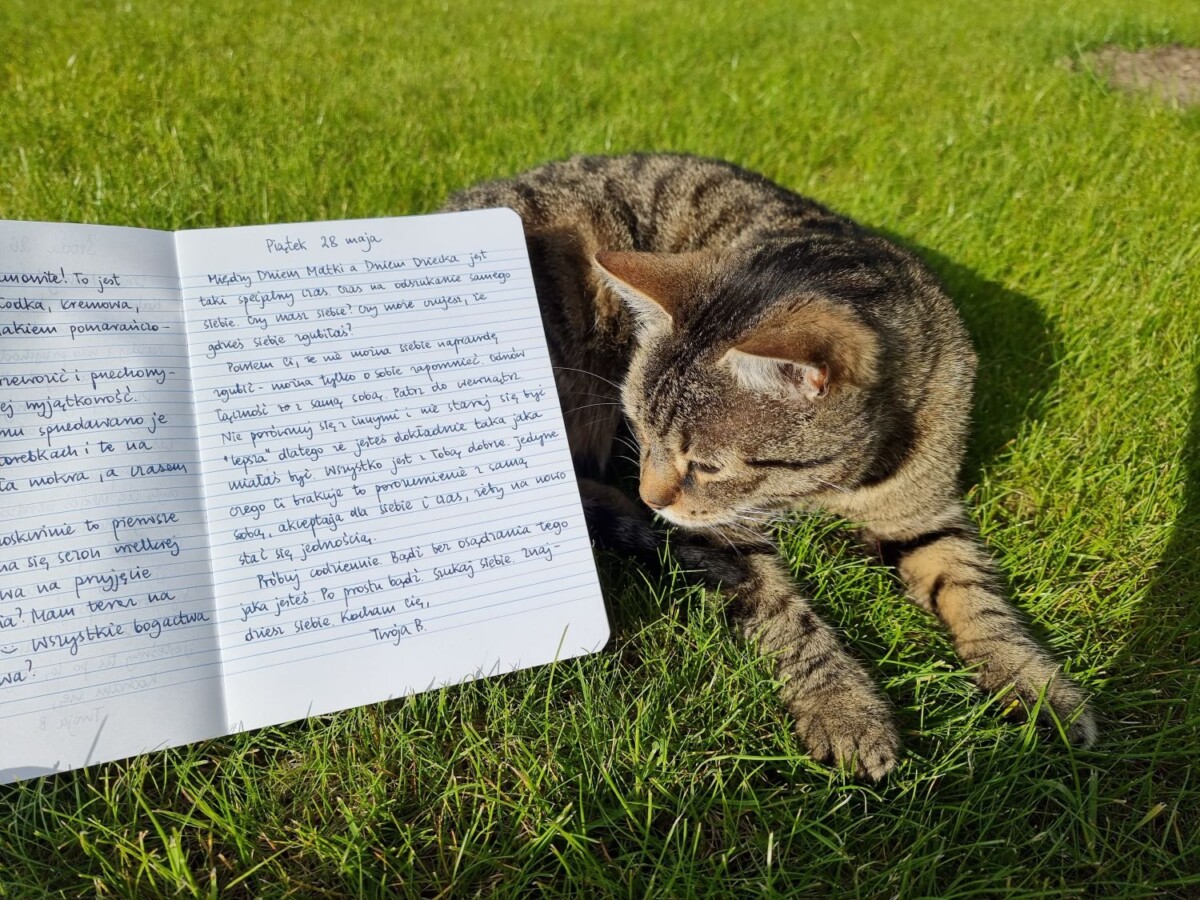 To jest
kremowa,
pomarańczo-
i przechowy-
ej wyjątkowość.
mu sprzedawano je
orebkach i te na
ta mokra, a czasem
to pierwsze
na się sezon wielkiej
wa na przyjęcie
Mam teraz na
Wszystkie bogactwa
wa?
Piątek 28 maja
Między Dniem Matki a Dniem Dziecka jest
taki specjalny czas. Czas na odszukanie samego
siebie. Czy masz siebie? Czy może czujesz, że
gdzieś siebie zgubiłaś?
Powiem Ci, że nie można siebie naprawdę
zgubić - można tylko o sobie zapomnieć. Odnów
łączność ze z samą sobą. Patrz do wewnątrz.
Nie porównuj się z innymi i nie staraj się być
"lepsza" dlatego że jesteś dokładnie taka jaka
miałaś być. Wszystko jest z Tobą dobrze. Jedyne
czego Ci brakuje to porozumienie z samą
sobą, akceptacja dla siebie i czas, żeby na nowo
stać się jednością.
Próbuj codziennie. Bądź bez osądzania tego
jaka jesteś. Po prostu bądź. Szukaj siebie. Znaj-
dziesz siebie. Kocham Cię,
Twoja B.